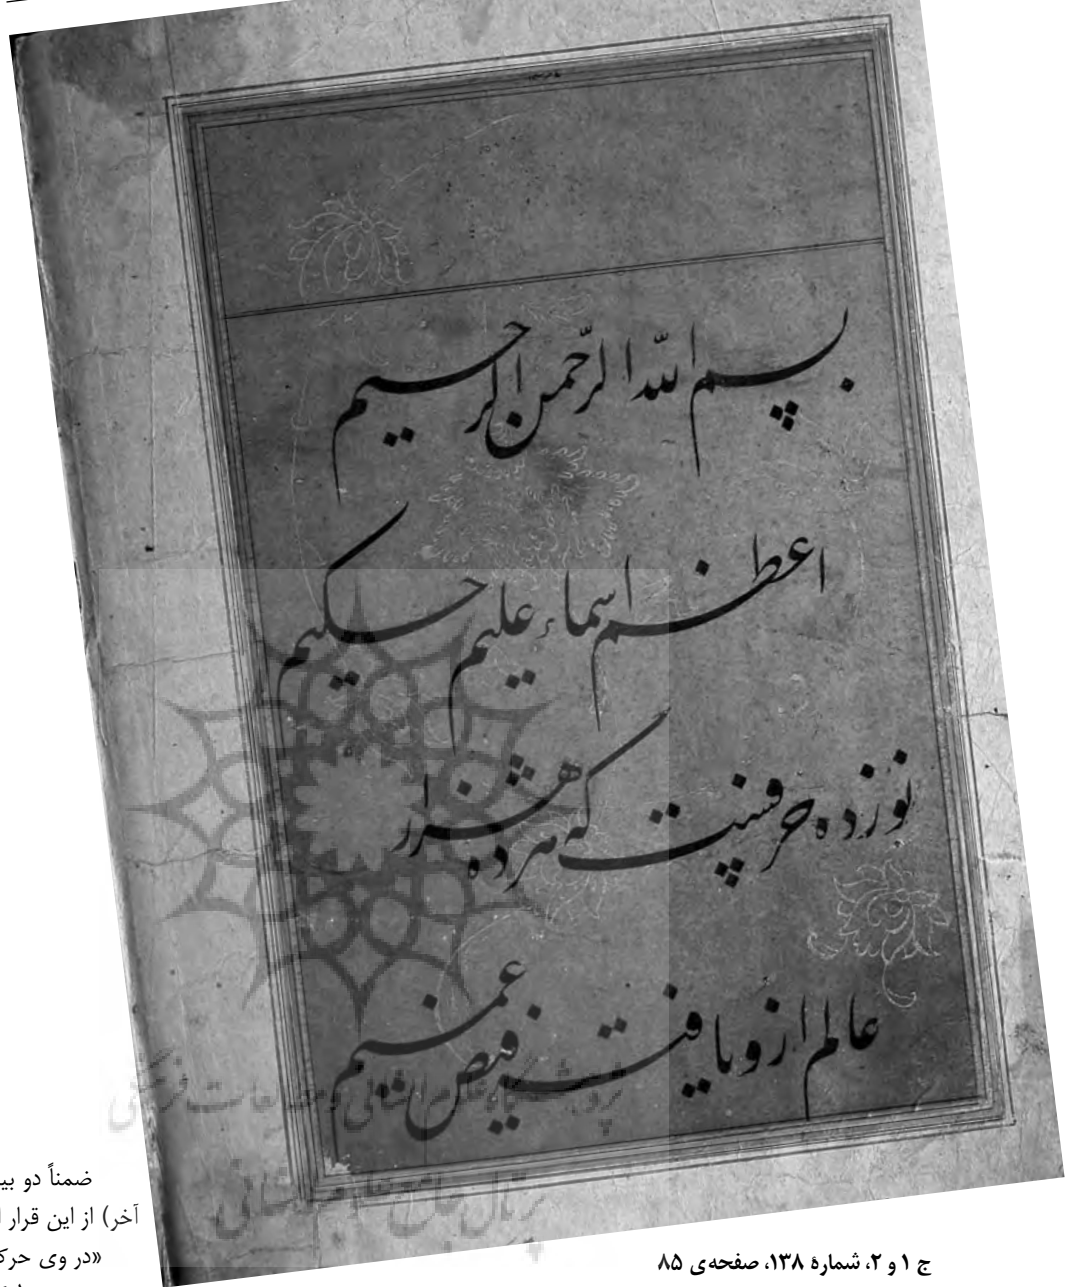 بسم الله الرّحمن الرحیم
اعظم اسماء علیم حکیم
نوزده حرفست که هژده هزار
عالم ازو یافت فیض عمیم
پژوهشگاه علوم انسانی و مطالعات فرهنگی
پرتال جامع علوم انسانی
ضمناً دو بیـ
آخر) از این قرار ا
«در وی حرکـ
ج ۱ و ۲، شمارهٔ ۱۳۸، صفحه‌ی ۸۵